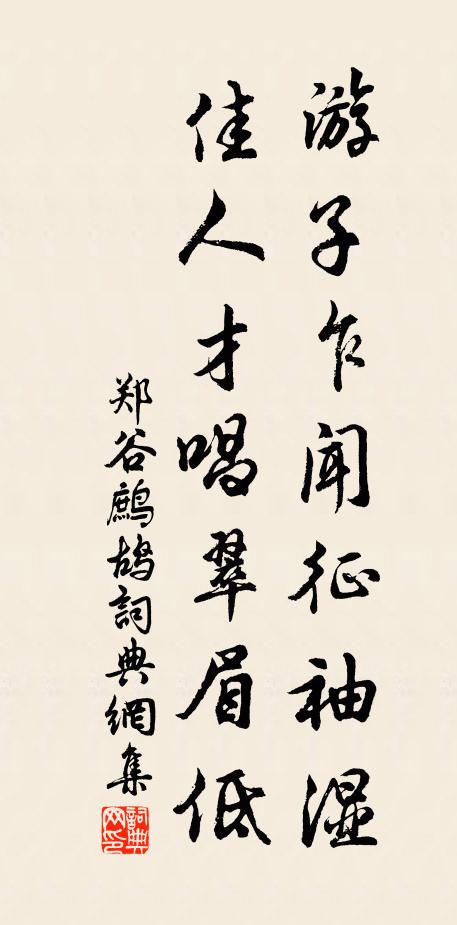 游子乍闻征袖湿
佳人才唱翠眉低
郑谷鹧鸪詞典網集
詞典网印